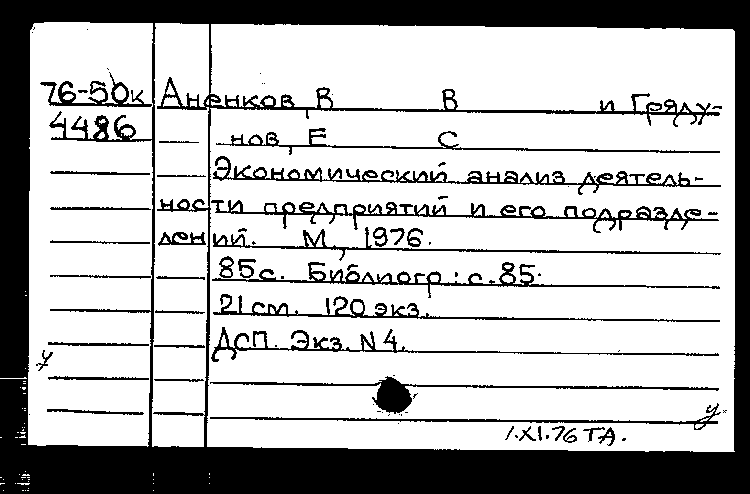 76-50к Аненков, В В и Гряду-
4486 нов, Е С
Экономический анализ деятель-
ности предприятий и его подразде-
лений. М., 1976.
85 с. Библиогр: с. 85.
21 см. 120 экз.
ДСП. Экз. N 4.
у
у
1.XI.76 ТА.